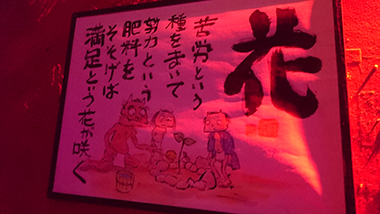 花
苦労という
種をまいて
努力という
肥料を
そそげば
満足という花が咲く